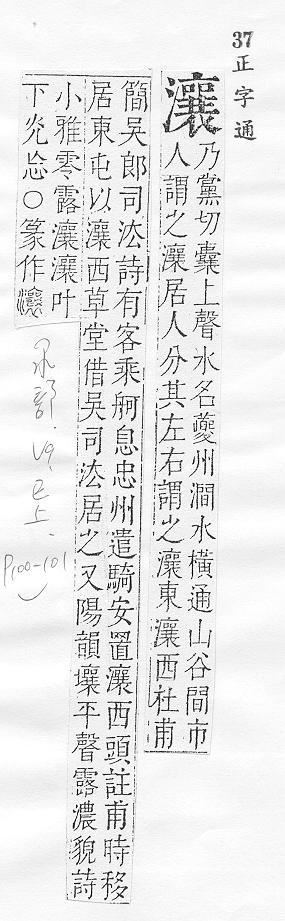 37 正字通
瀼
乃黨切囊上聲水名夔州澗水橫通山谷間市
人謂之瀼居人分其左右謂之瀼東瀼西杜甫
簡吳郎司法詩有客乘舸息忠州遣騎安置瀼西頭註甫時移
居東屯以瀼西草堂借吳司法居之又陽韻壤平聲露濃貌詩
小雅零露瀼瀼叶
下光忘○篆作瀼
水部. 巳上.
P100-101